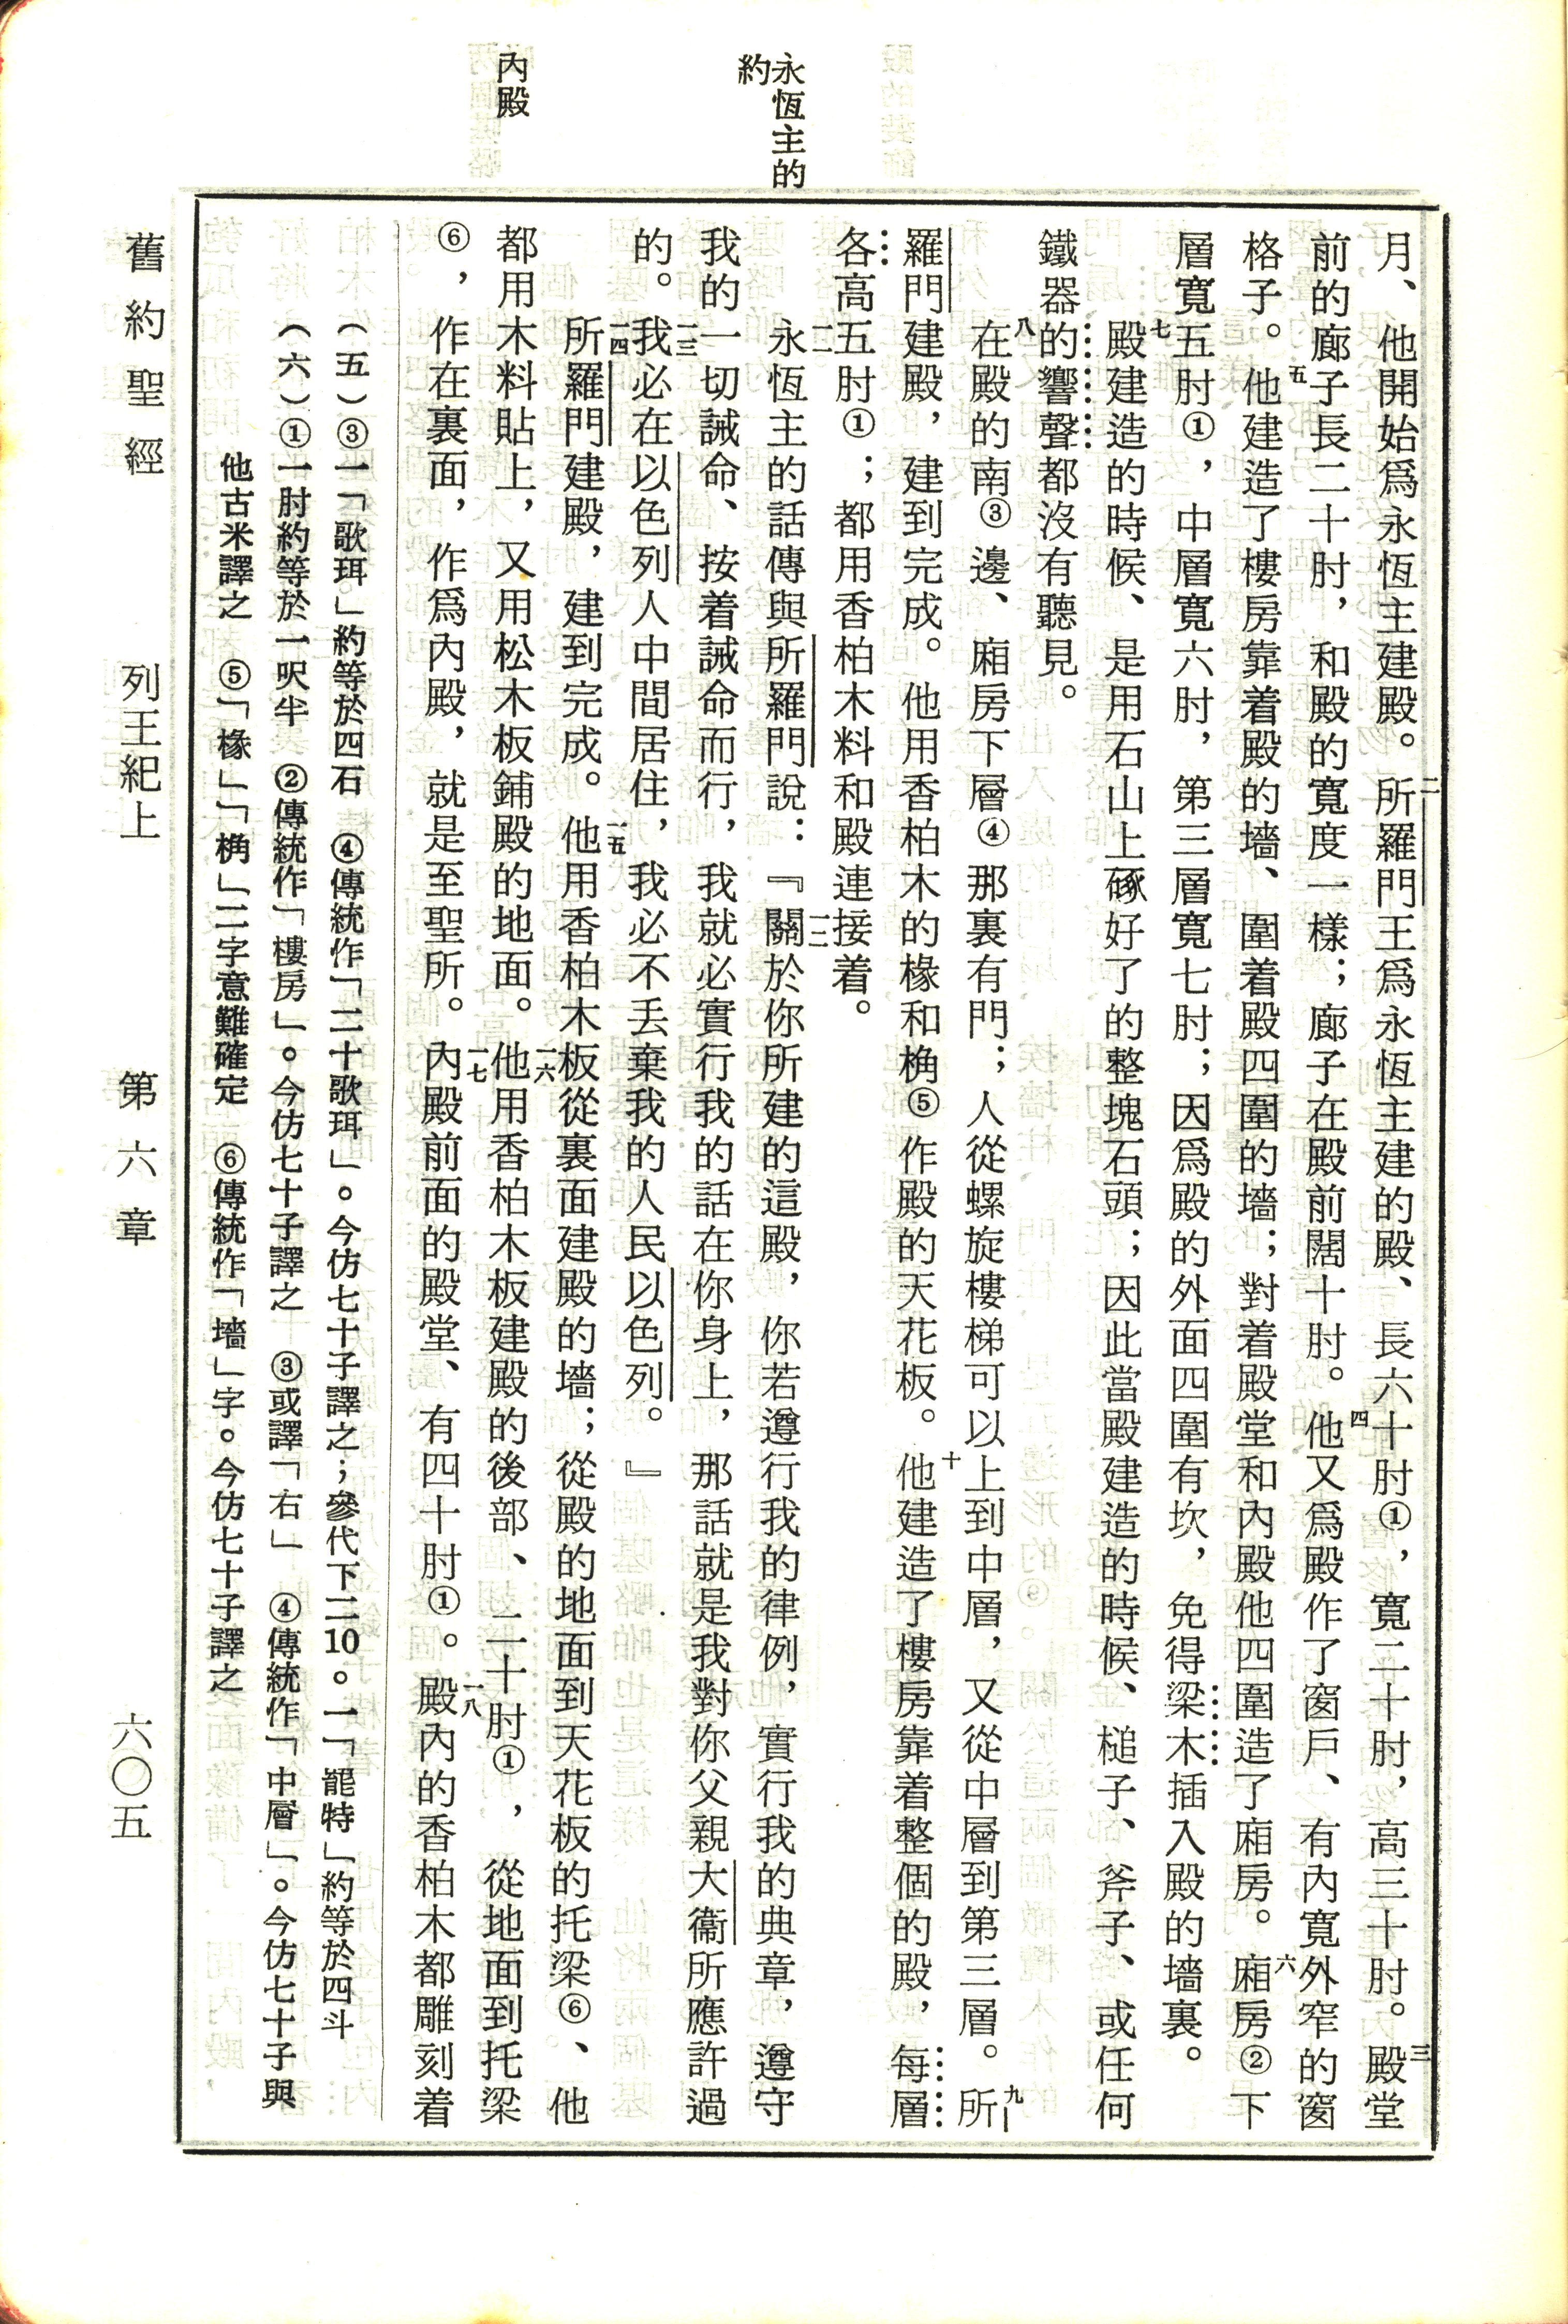 永恆主的
約
內殿
月、他開始爲永恆主建殿。二所羅門王爲永恆主建的殿、長六十肘①，寬二十肘，高三十肘。三殿堂
前的廊子長二十肘，和殿的寬度一樣；廊子在殿前闊十肘。四他又爲殿作了窗戶、有內寬外窄的窗
格子。五他建造了樓房靠着殿的墻、圍着殿四圍的墻；對着殿堂和內殿他四圍造了廂房。六廂房②下
層寬五肘①，中層寬六肘，第三層寬七肘；因爲殿的外面四圍有坎，免得梁木插入殿的墻裏。
七殿建造的時候、是用石山上硺好了的整塊石頭；因此當殿建造的時候、槌子、斧子、或任何
鐵器的響聲都沒有聽見。
八在殿的南③邊、廂房下層④那裏有門；人從螺旋樓梯可以上到中層，又從中層到第三層。九所
羅門建殿，建到完成。他用香柏木的椽和桷⑤作殿的天花板。十他建造了樓房靠着整個的殿，每層
各高五肘①；都用香柏木料和殿連接着。
一一永恆主的話傳與所羅門說：『一二關於你所建的這殿，你若遵行我的律例，實行我的典章，遵守
我的一切誡命、按着誡命而行，我就必實行我的話在你身上，那話就是我對你父親大衞所應許過
的。一三我必在以色列人中間居住，我必不丢棄我的人民以色列。』
一四所羅門建殿，建到完成。一五他用香柏木板從裏面建殿的墻；從殿的地面到天花板的托梁⑥、他
都用木料貼上，又用松木板鋪殿的地面。一六他用香柏木板建殿的後部、二十肘①，從地面到托梁
⑥，作在裏面，作爲內殿，就是至聖所。一七內殿前面的殿堂、有四十肘①。一八殿內的香柏木都雕刻着
（五）③一「歌珥」約等於四石　④傳統作「二十歌珥」。今仿七十子譯之；參代下二10。一「罷特」約等於四斗
（六）①一肘約等於一呎半　②傳統作「樓房」。今仿七十子譯之　③或譯「右」　④傳統作「中層」。今仿七十子與
他古米譯之　⑤「椽」「桷」二字意難確定　⑥傳統作「墻」字。今仿七十子譯之
舊約聖經　列王紀上　第六章　六〇五